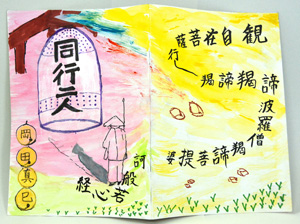 観自在菩薩
行
羯諦羯諦
波羅僧
羯諦菩提
婆
訶
般若心経
同行二人
岡田真巳